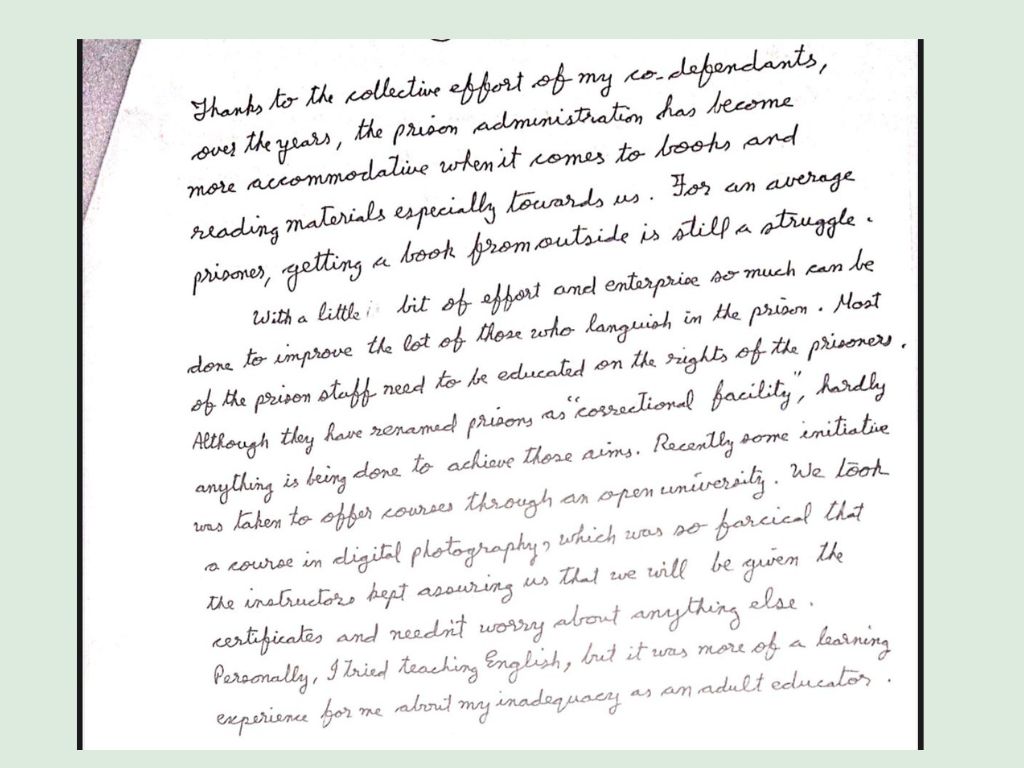 Thanks to the collective effort of my co-defendants,
over the years, the prison administration has become
more accommodative when it comes to books and
reading materials especially towards us. For an average
prisoner, getting a book from outside is still a struggle.
With a little bit of effort and enterprise so much can be
done to improve the lot of those who languish in the prison. Most
of the prison staff need to be educated on the rights of the prisoners.
Although they have renamed prisons as "correctional facility", hardly
anything is being done to achieve those aims. Recently some initiative
was taken to offer courses through an open university. We took
a course in digital photography, which was so farcical that
the instructors kept assuring us that we will be given the
certificates and needn't worry about anything else.
Personally, I tried teaching English, but it was more of a learning
experience for me about my inadequacy as an adult educator.